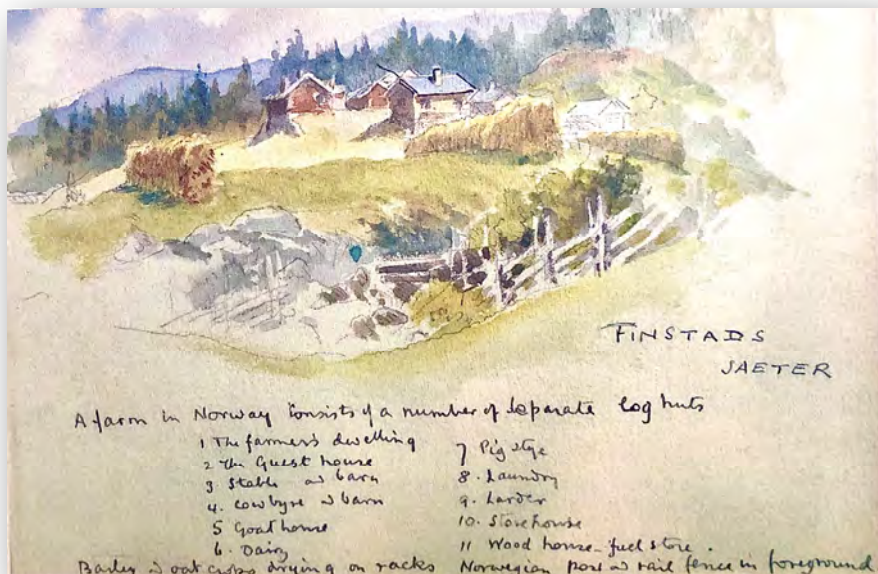 FINSTADS
JAETER
A farm in Norway consists of a number of separate log huts
1 The farmer's dwelling
2 The Guest house
3 Stable & barn
4. Cowbyre & barn
5 Goat house
6. Dairy
7 Pig stye
8. Laundry
9. Larder
10. Storehouse
11 Wood house - fuel store.
Barley & oat crops drying on racks Norwegian post & rail fence in foreground